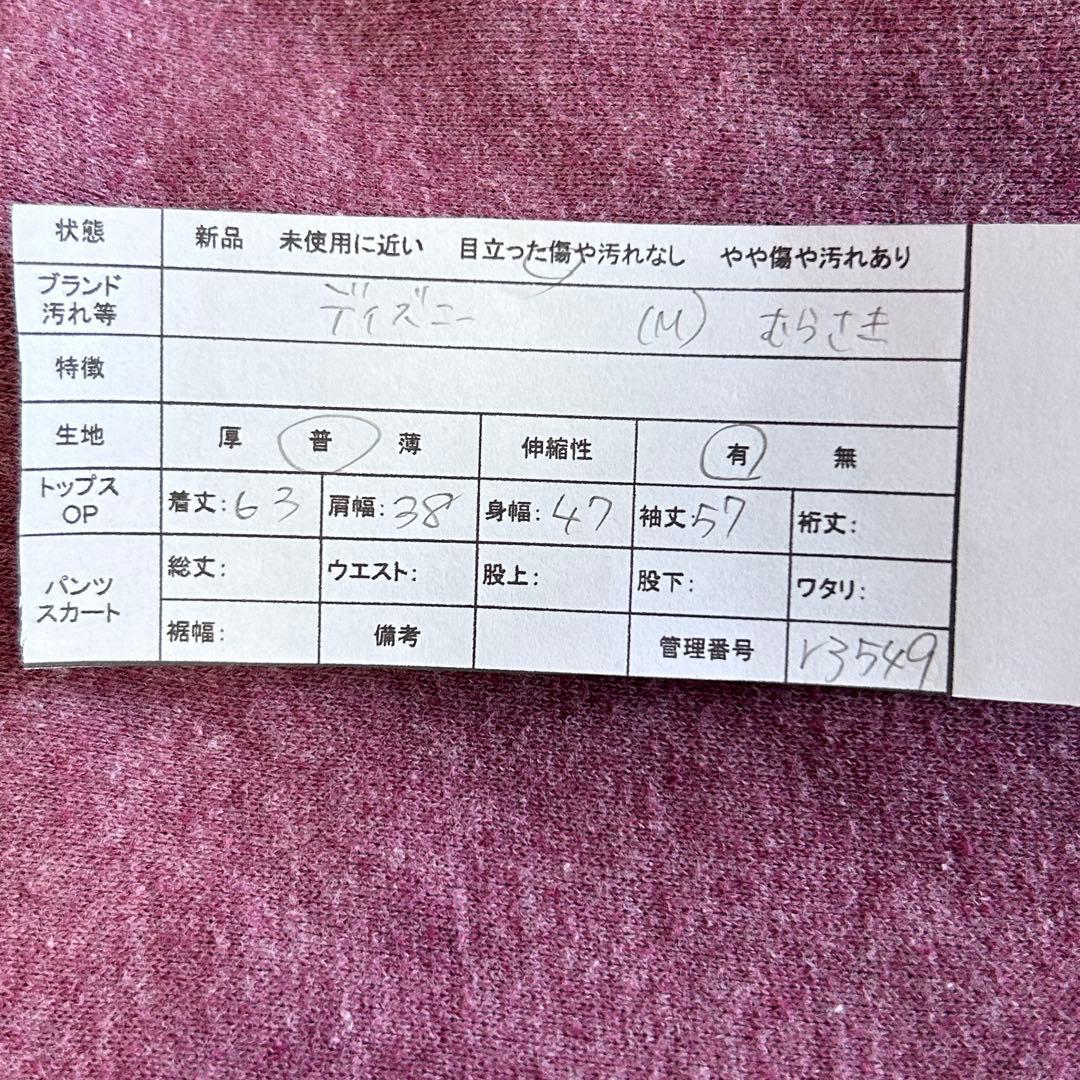 状態 新品 未使用に近い 目立った傷や汚れなし やや傷や汚れあり
ブランド
汚れ等 ディズニー (M) むらさき
特徴
生地 厚 普 薄 伸縮性 有 無
トップス
OP 着丈:63 肩幅:38 身幅:47 袖丈:57 裄丈:
パンツ
スカート 総丈: ウエスト: 股上: 股下: ワタリ:
裾幅: 備考 管理番号 r3549